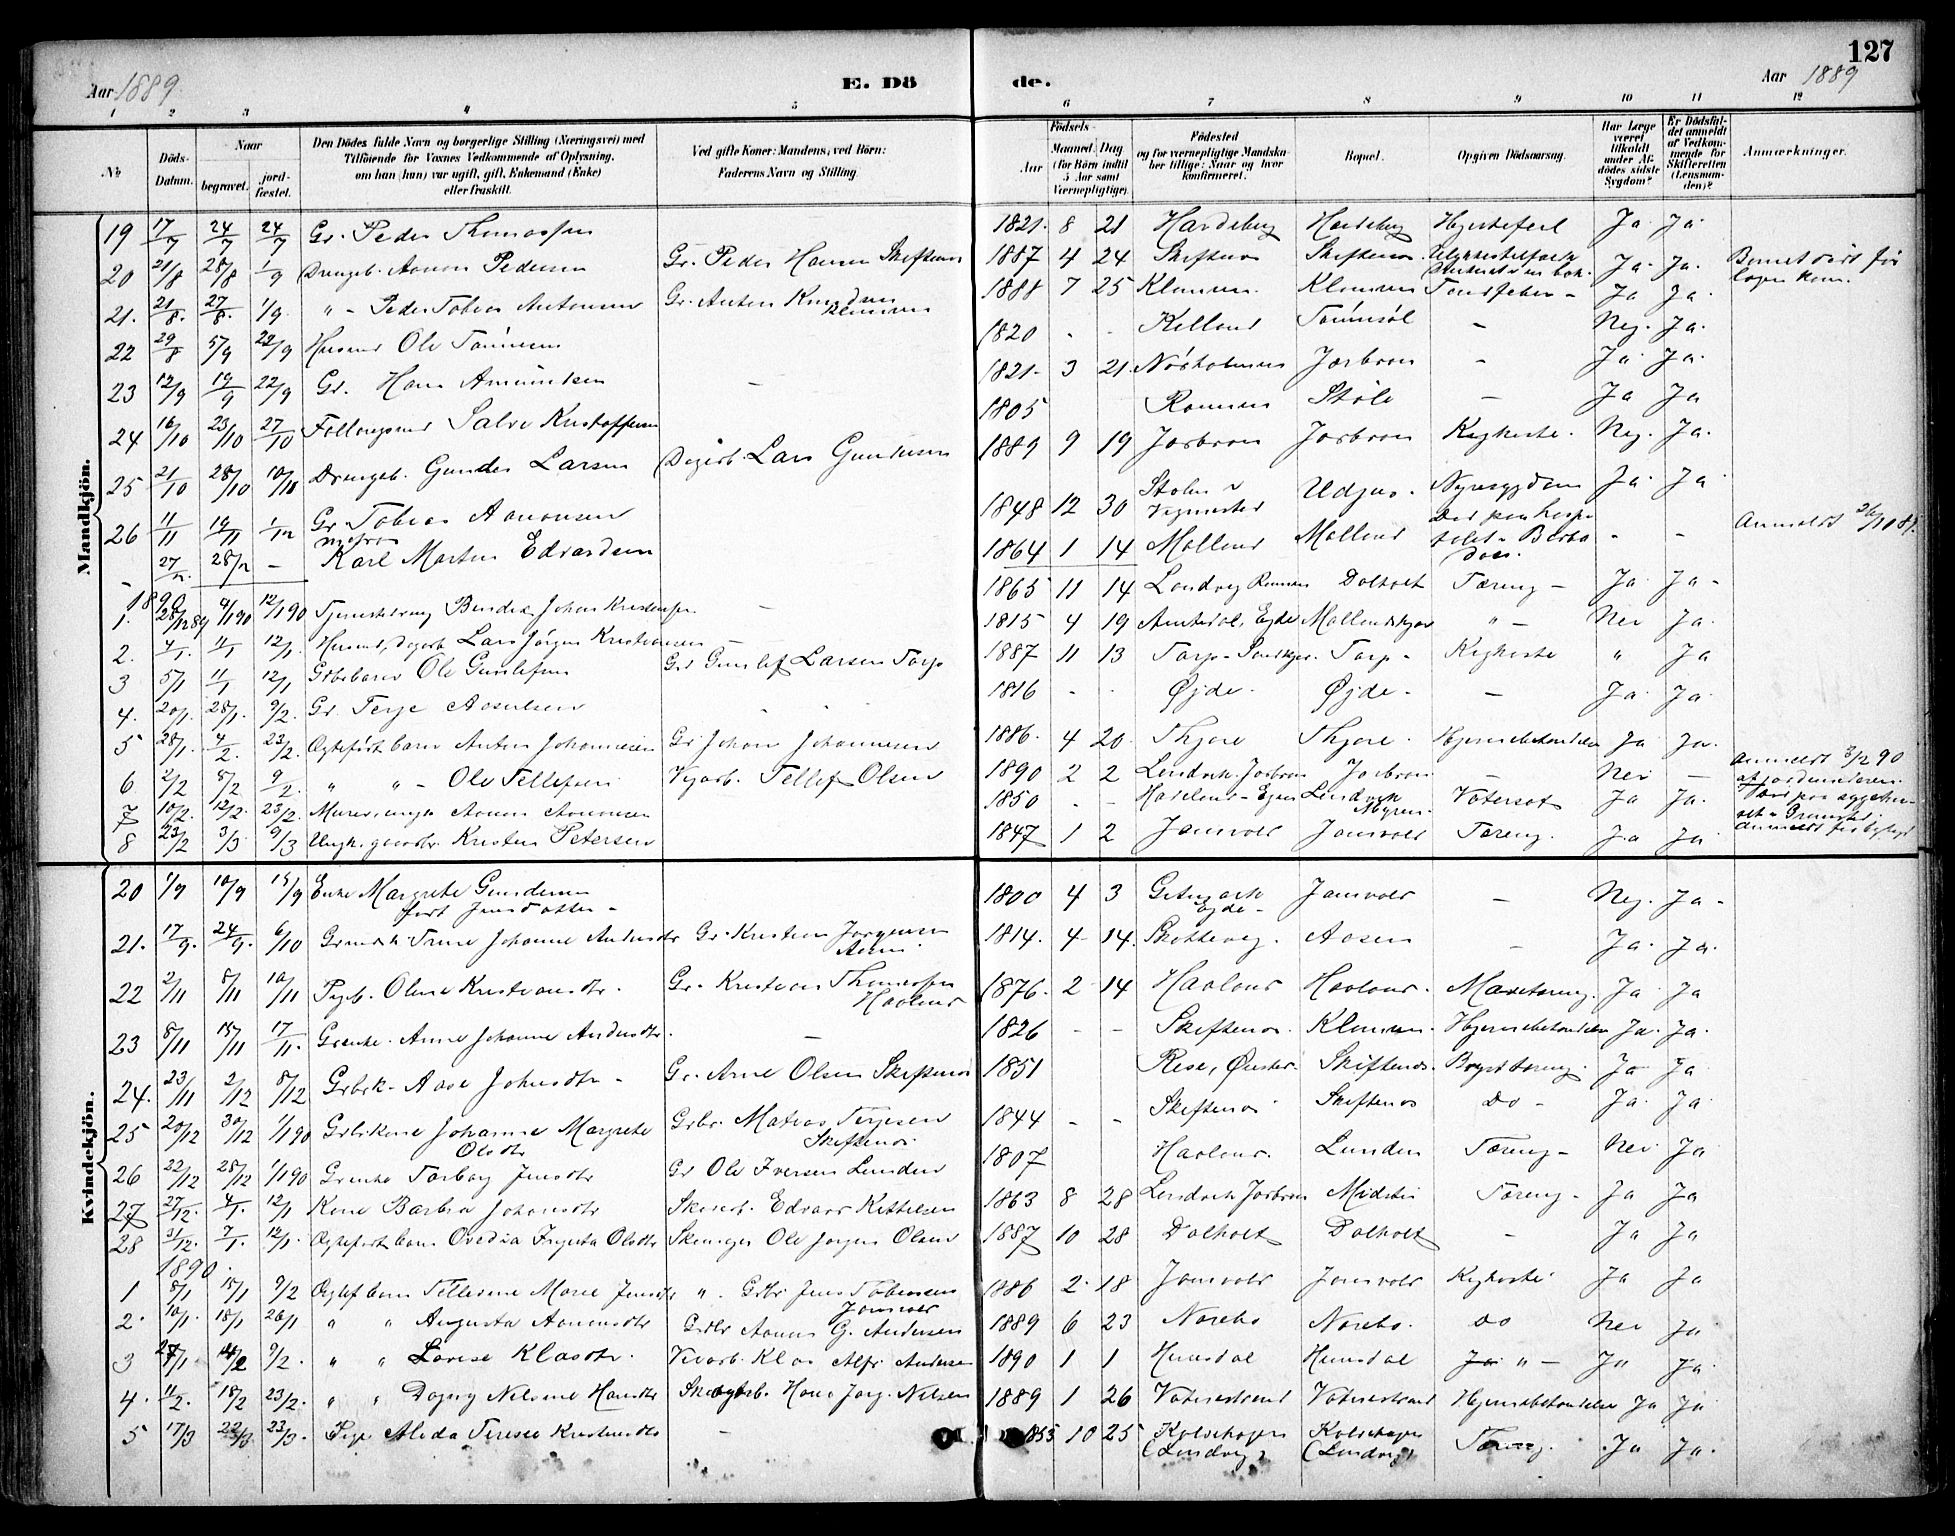 127
Aar 1889 E. Dö de. Aar 1889
1 2 3 4 5 6 7 8 9 10 11 12
№ Döds-Datum. Naar begravet. jordfæstet. Den Dödes fulde Navn og borgerlige Stilling (Næringsvei) med Tilföiende for Voxnes Vedkommende af Oplysning, om han (hun) var ugift, gift, Enkemand (Enke) eller fraskilt. Ved gifte Koner: Mandens; ved Börn: Faderens Navn og Stilling. Födsels- Aar Maaned. Dag (for Börn indtil 5 Aar samt Værnepligtige). Födested og for værnepligtige Mandskaber tillige: Naar og hvor konfirmeret. Bopæl. Opgiven Dödsaarsag. Har Læge været tilkaldt under Afdödes sidste Sygdom? Er Dödsfaldet anmeldt af Vedkommende for Skifteretten (Lensmanden)? Anmærkninger.
Mandkjön.
19 17/7 24/7 24/7 Gr. Peder Thomassen 1821 8 21 Hardeberg Hardeberg Hjertefeil Ja Ja
20 21/8 28/8 1/9 Drengeb. Aanon Pedersen Gr. Peder Hansen Skiftenæs 1887 4 24 Skiftenæs Skiftenæs Ulykkestilfælde Ja Ja Barnet dødt før lægen kom.
21. 21/8 27/8 1/9 " - Peder Tobias Antonsen Gr. Anton Knudsen Klemmen 1888 7 25 Klemmen Klemmen Tandfeber - Ja Ja
22 29/8 5/9 22/9 Husmd Ole Tønnesen 1820 - - Kalland Tønnesøl - Nej. Ja.
23 12/9 19/9 22/9 Gr. Hans Amundsen - 1821 3 21 Nørholmen Jorbroen - Ja Ja.
24 16/10 23/10 27/10 Follaugsmd Salve Kristoffersen 1805 Rønnes Støle - Ja Ja
25 21/10 28/10 10/11 Drengeb. Gunder Larsen Dagarb. Lars Gundersen 1889 9 19 Jorbroen Jorbroen Kighoste. Nej. Ja.
26 11/11 19/11 1/12 Gr. Tobias Aanonsen 1848 12 30 Udjus. Nyresygdom Ja Ja
- 27/2. 28/2 - Matros Karl Martin Edvardsen 1864 1 14 Molland Molland Død paa hospitalet - Barbadoes. - - Anmeldt 26/10 89.
1890
1. 28/12 89 9/1 90 12/1 90 Tjenestedreng Bendix Johan Kristensen - 1865 11 14 Landvig Rønnes Dolholt Tæring - Ja Ja -
2. 4/1. 11/1 12/1. Husmd, Dagarb Lars Jørgen Kristiansen - 1815 4 19 Amtedal, Egde Mollandskjær " - Nei Ja.
3 5/1 11/1 12/1 Grbsbarn Ole Gunlefsen Gr. Gunlef Larsen Tarp 1887 11 13 Tarp - Tarp - Kighoste " Ja
4. 20/1. 28/1. 9/2. Gr. Terje Aasulsen - - 1816 - - Øjde. Øjde. - Ja. Ja.
5 28/1. 4/2. 23/2. Ægtefødt barn Anton Johannesen Gr Johan Johannesen 1886. 4 20. Thjore Thjore. Hjernebetændelse Ja Ja.
6 2/2 5/2 9/2. " " - Ole Tellefsen Vejarb. Tellef Olsen 1890 2 2 Landvik. Jorbroen Jorbroen. - Nei - Anmeldt 3/2 90 af jordemoderen.
7 10/2. 12/2. 23/2. Murer, ungk Aanon Aanonsen 1850 - - Haaland - Egde Landvik Myren. Vatersot Ja Ja. Død paa sygehuset i Grimstad.
8 23/2 3/3 9/3 Ungk. gaardbr. Kristen Petersen 1847 1 2 Jomsvold Jomsvold Tæring. Ja Ja Anmeldt fra byfogd
Kvindekjön.
20 1/9 10/9 15/9 Enke Margrete Gundersen født Jensdatter - 1800 4 3 Egde - Jomsvold - Nej. Ja -
21. 17/9. 24/9. 6/10 Grmdsk. Trine Johanne Andersdtr Gr. Kristian Jørgensen Aasen 1814. 4 14. Skottevig. Aasen - Ja. Ja.
22 2/11 8/11 10/11 Pigeb. Oline Kristiansdtr. Gr. Kristian Thomassen Haaland 1876. 2 14 Haaland Haaland. Mavetæring. Ja Ja
23 8/11 15/11 17/11. Grenke. Anne Johanne Andersdtr. - 1826 - - Skiftenæs. Klemmen. Hjernebetændelse Ja. Ja.
24. 23/11 2/12 8/12 Grbrk. Aase Johnsdtr - Gr. Arne Olsen Skiftenæs 1851 Rise, Øiestad Skiftenæs. Brysttæring. Ja Ja
25 20/12 30/12 1/1 90 Grbrkone Johanne Margrete Olsdtr Grbr. Matias Terjesen Skiftenæs. 1844 - - Skiftenæs Skiftenæs Do - Ja. Ja.
26 22/12 28/12 1/1 90 Grenke Tarborg Jensdtr Gr Ole Iversen Lunden 1807 Haaland. Lunden Tæring - Nei Ja
27 27/12. 4/1. 12/1 Kone Barbra Johansdtr Skomrb. Edvard Kittelsen 1863 8 28 Landvik Jorbroen Midstøi Tæring - Ja Ja
28 31/12. 7/1. 12/1. Ægtefødt barn Ovedia Ingusta Olsdtr Skomager Ole Jørgen Olsen 1887 10 28 Dolholt Dolholt - Ja Ja
1890.
1 8/1 15/1 9/2 Ægtef barn Tellesine Marie Jensdtr ". Grbr Jens Tobiassen Jomsvold 1886 2 18 Jomsvold Jomsvold Kighoste Ja Ja
2. 10/1. 18/1 26/1 " " Augusta Aanonsdtr Grdbr Aanon G. Andersen 1889 6 23 Norebø Norebø. Do Nei Ja
3 9/2. " " Lovise Klasdtr. Vevarb. Klas Alfr. Andersen 1890 1 1 Humsdal Humsdal " - Ja Ja.
4. 11/2. 18/2 23/2. " " Dagny Nilsine Hansdtr Hans Jørg. Nilsen 1889 1 26 Vaterstrand Vaterstrand Hjernebetændelse Ja Ja
5 17/3 22/3 23/3. Pige Alida Terese Kristensdtr - 1853 10 25 Kalvehagen (Landvig) Kalvehagen (Landvig) Tæring. Ja Ja.